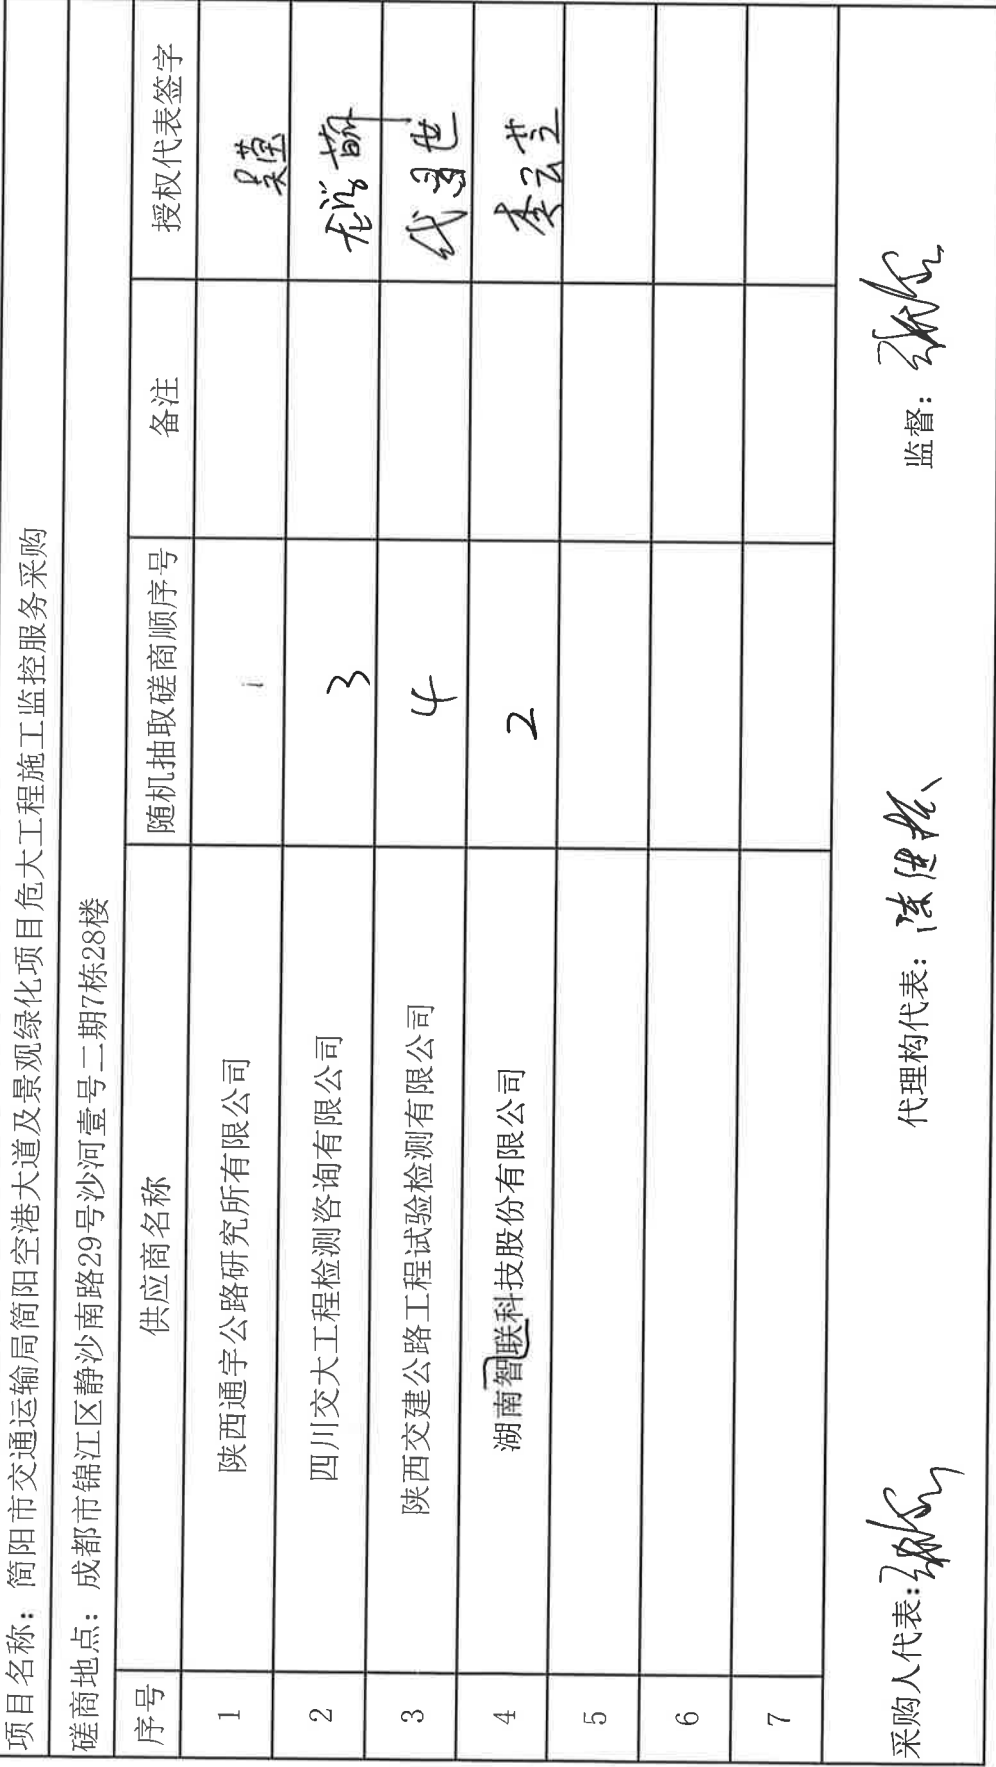 项目名称：简阳市交通运输局简阳空港大道及景观绿化项目危大工程施工监控服务采购
磋商地点：成都市锦江区静沙南路29号沙河壹号二期7栋28楼
序号 供应商名称 随机抽取磋商顺序号 备注 授权代表签字
1 陕西通宇公路研究所有限公司 1 吴莹
2 四川交大工程检测咨询有限公司 3
3 陕西交建公路工程试验检测有限公司 4
4 湖南智联科技股份有限公司 2 李云芝
5
6
7
采购人代表： 代理构代表： 监督：